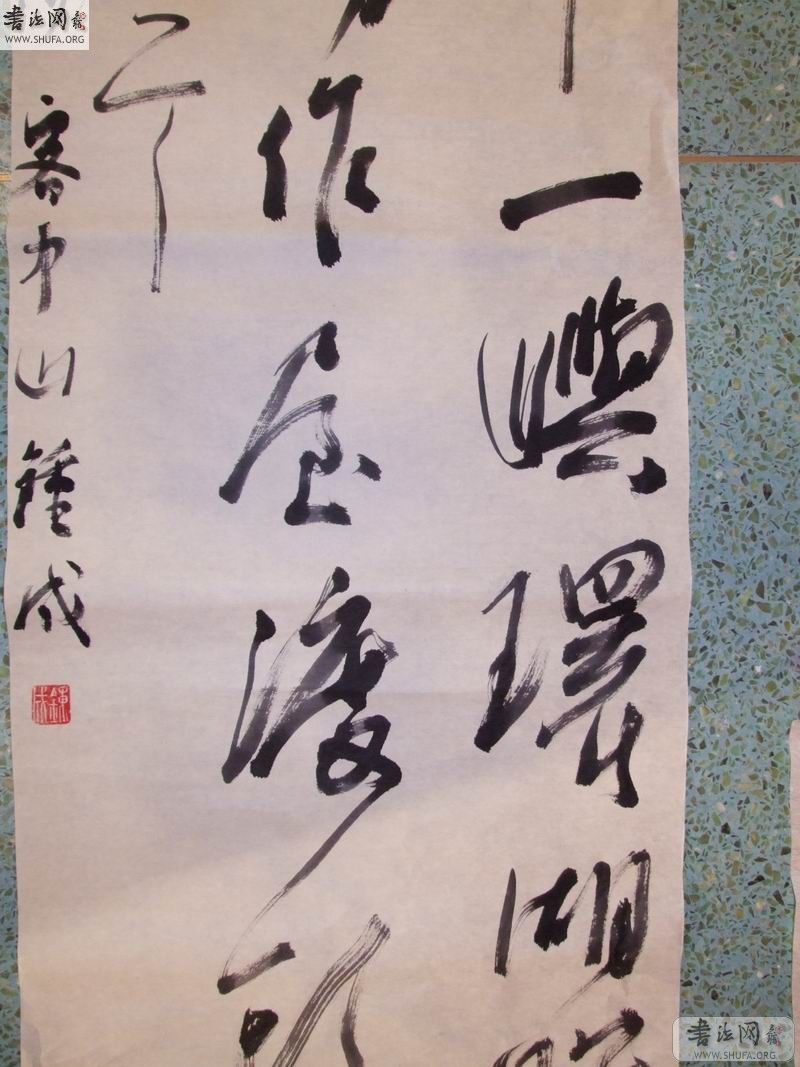 書法网
WWW.SHUFA.ORG
一嶼環湖
作屋渡頭
客中山鍾成
書法网
WWW.SHUFA.ORG